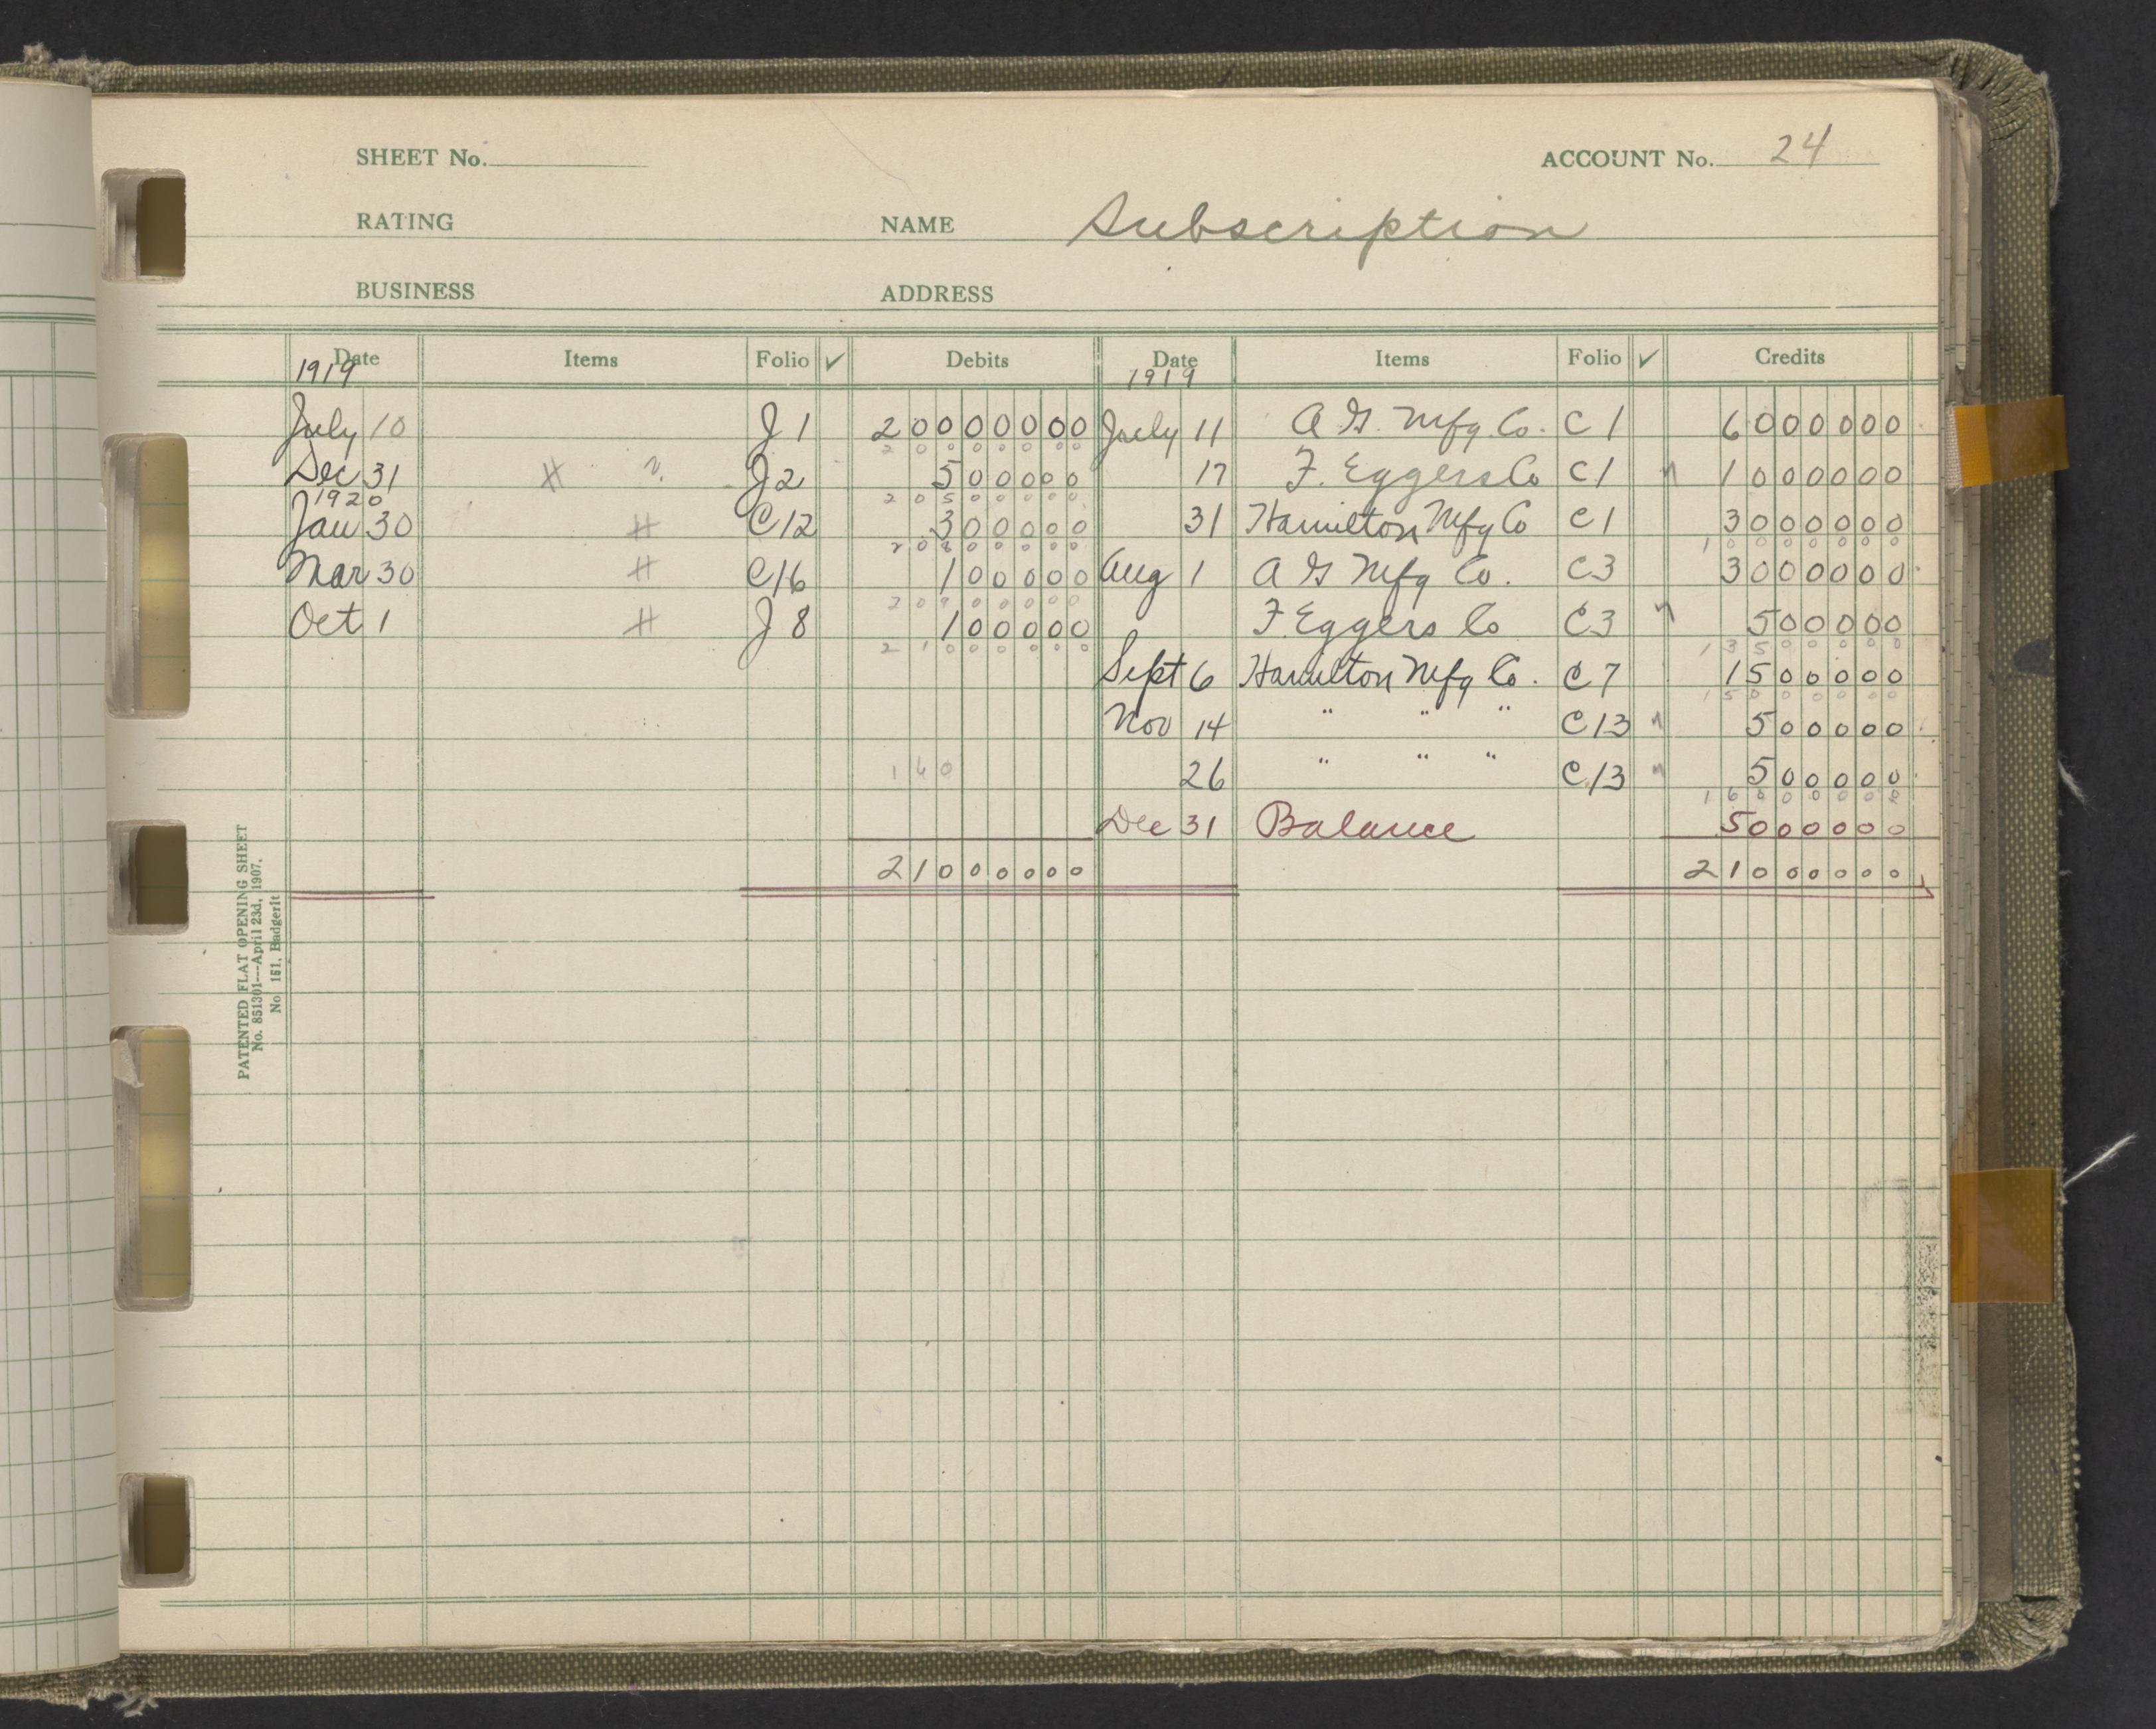 SHEET No. ACCOUNT No. 24
RATING NAME Subscription
BUSINESS ADDRESS
Date Items Folio ✓ Debits Date Items Folio ✓ Credits
1919 1919
July 10 J 1 20000000 July 11 A G. Mfg. Co. C 1 6000000
20000000
Dec 31 # ? J 2 500000 17 F. Eggers Co C 1 1000000
1920 20500000
Jan 30 # C 12 300000 31 Hamilton Mfg Co C 1 3000000
20800000 10000000
Mar 30 # C 16 100000 Aug 1 A G Mfg Co. C 3 3000000
20900000
Oct 1 # J 8 100000 F. Eggers Co C 3 500000
21000000 13500000
Sept 6 Hamilton Mfg Co. C 7 1500000
15000000
Nov 14 " " " C 13 500000
160 26 " " " C 13 500000
16000000
Dec 31 Balance 5000000
21000000 21000000
PATENTED FLAT OPENING SHEET
No. 851301---April 23d, 1907.
No. 151, Badgerit